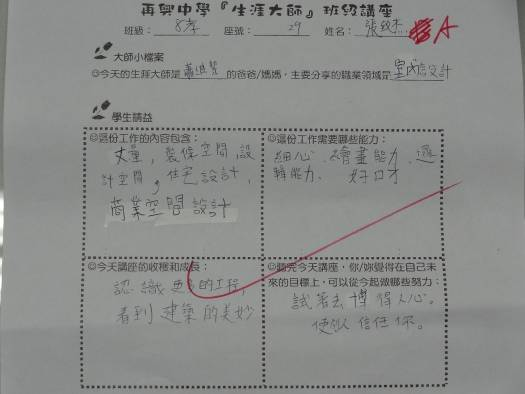 再興中學『生涯大師』班級講座
班級：8孝 座號：29 姓名：張 杰 A
大師小檔案
☺今天的生涯大師是 的爸爸/媽媽，主要分享的職業領域是室內設計
學生請益
☺這份工作的內容包含：
丈量，裝修空間，設
計空間，住宅設計，
商業空間設計
☺這份工作需要哪些能力：
細心、繪畫能力、邏
輯能力、好口才
☺今天講座的收穫和成長：
認識 的工程，
看到建築的美妙
☺聽完今天講座，你/妳覺得在自己未
來的目標上，可以從今起做哪些努力：
試著去博得人心。
使 信任你。